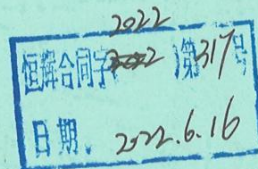 2022
恒辉合同字(2022)第317号
日期:2022.6.16